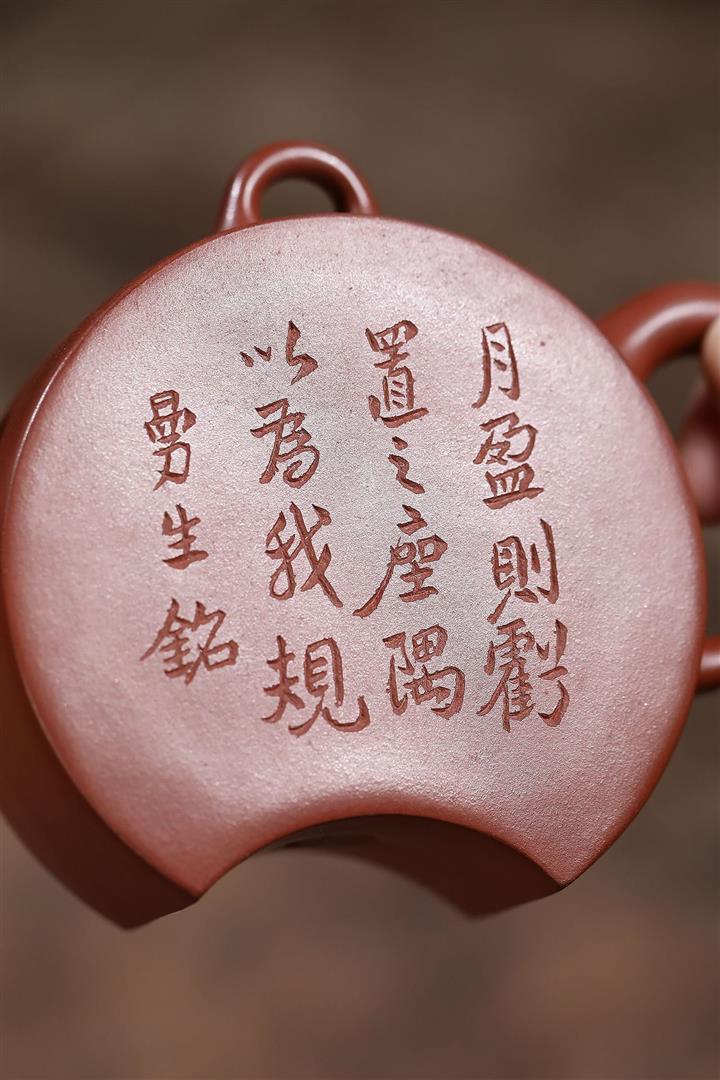 月盈則虧
置之座隅
以為我規
曼生銘